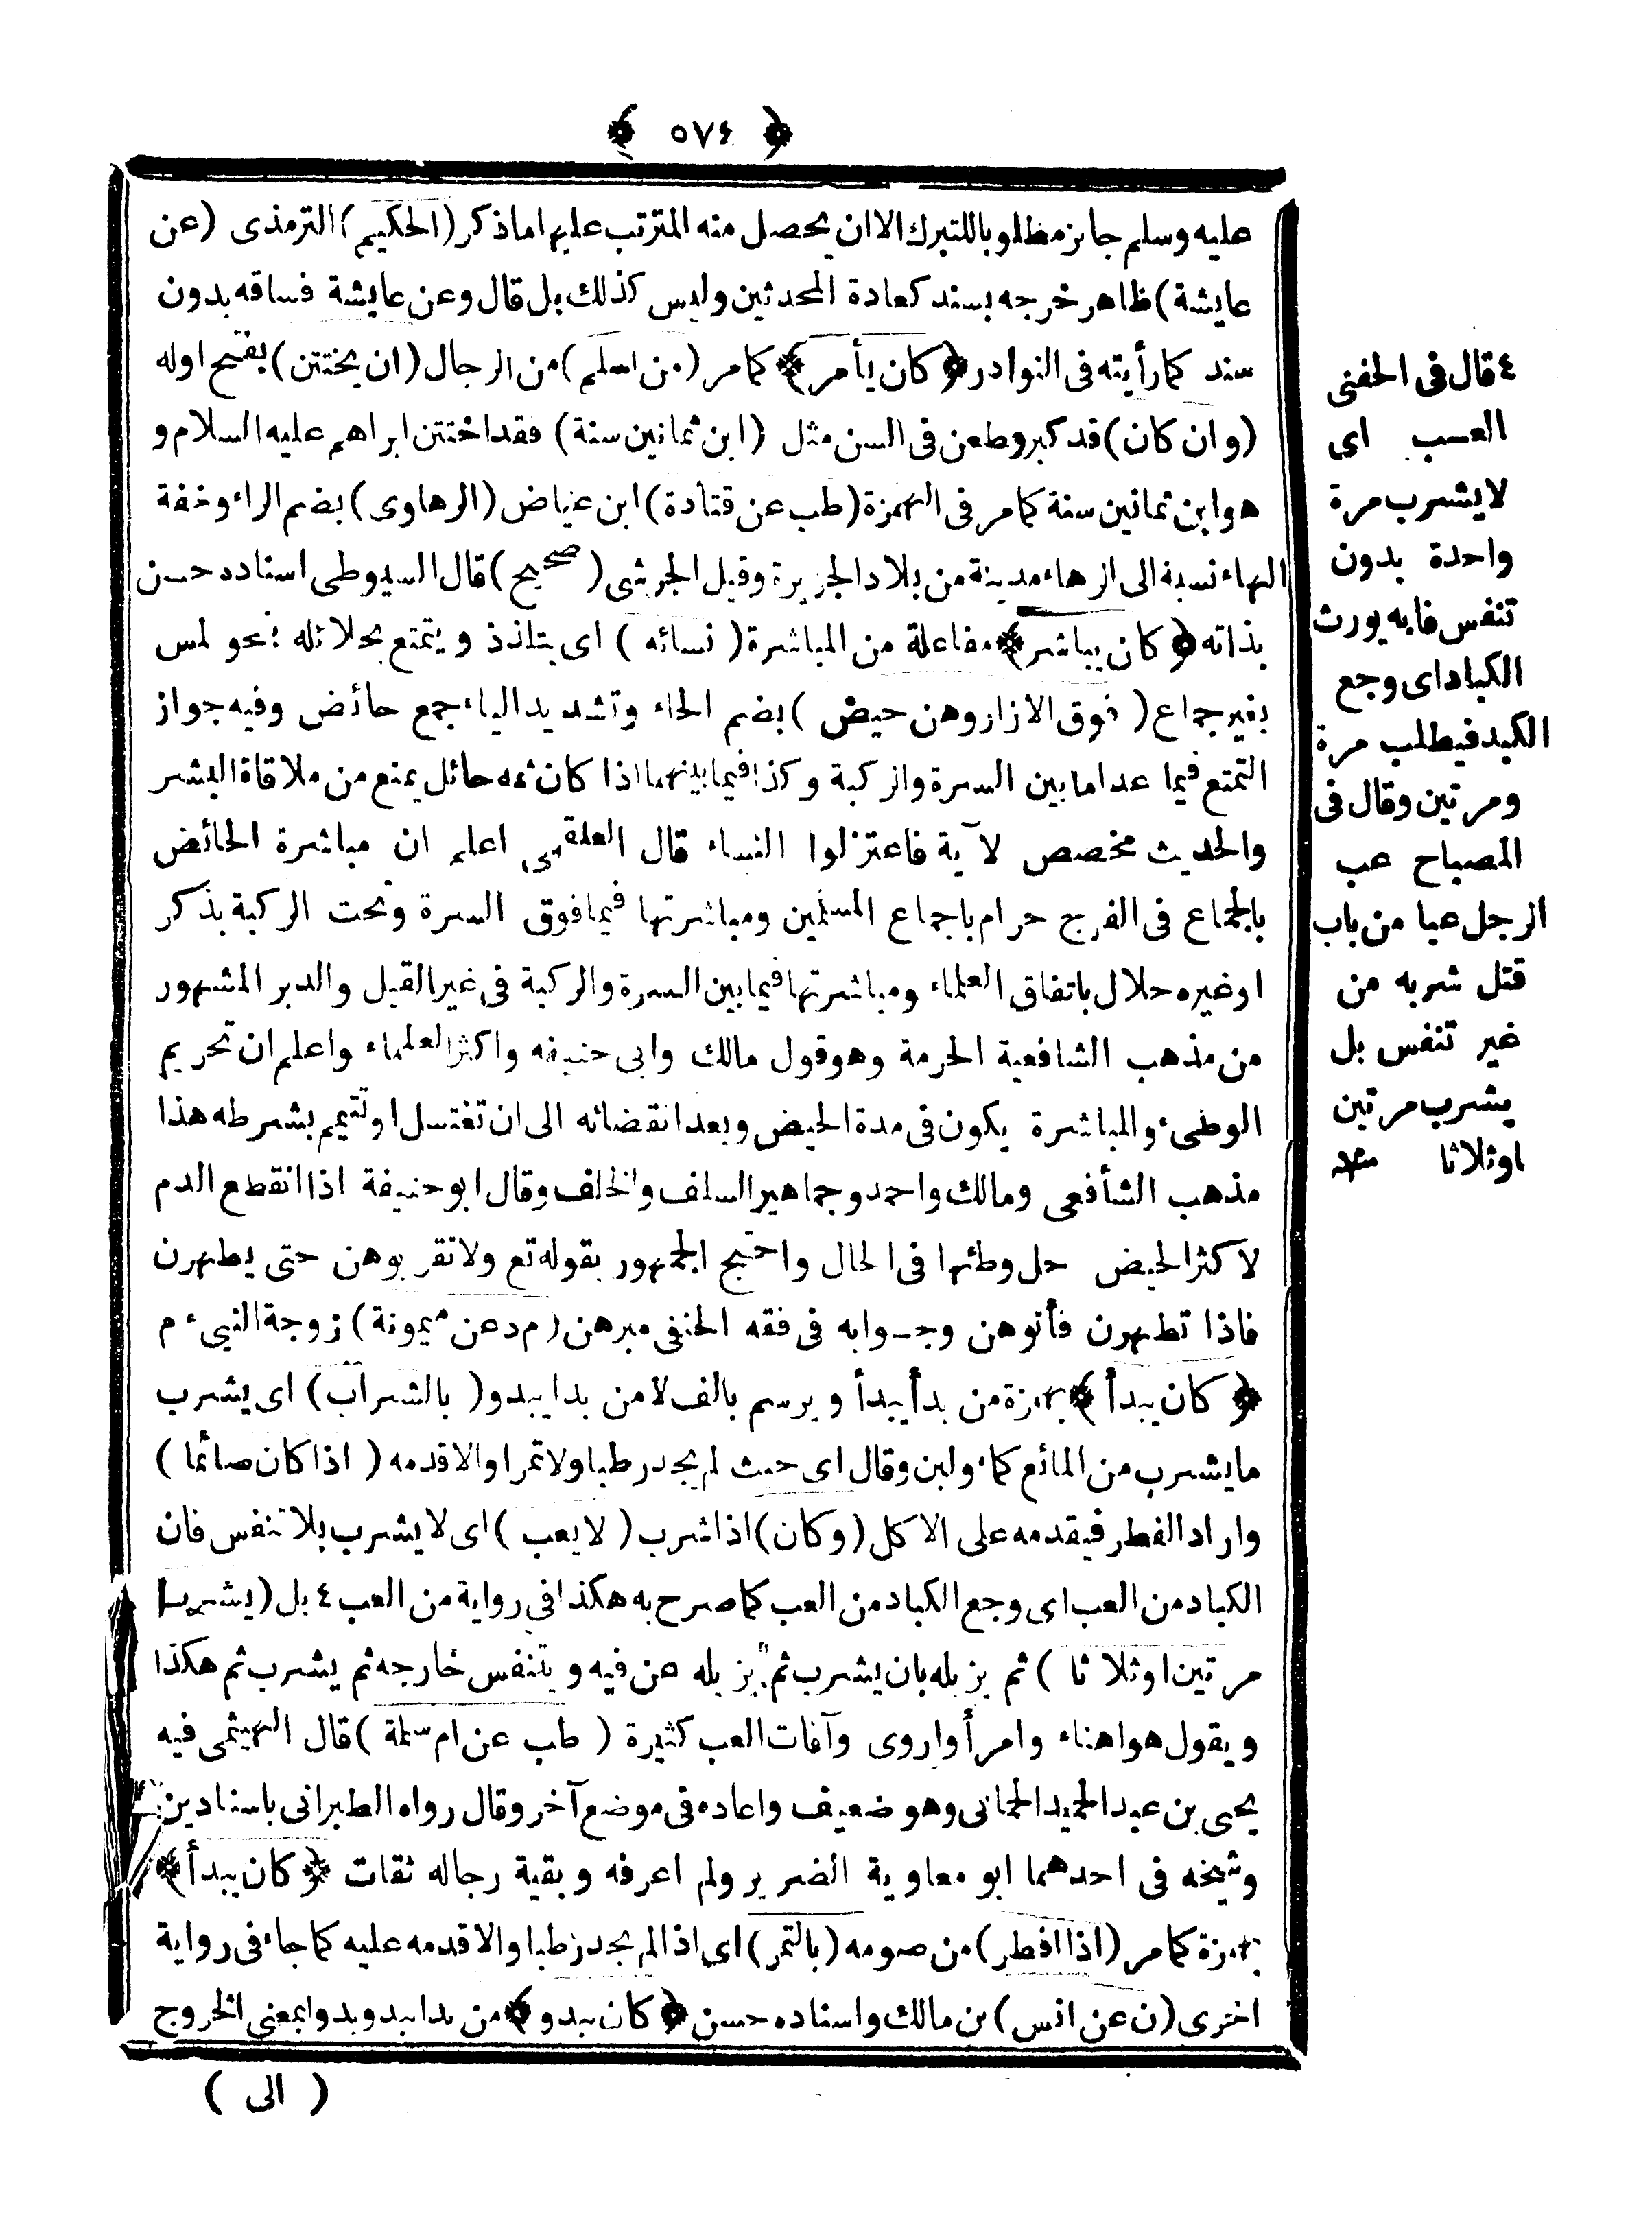 ﴿ ٥٧٤ ﴾
عليه وسلم جايز مطلوبا للتبرك الا ان يحصل منه المترتب عليها ماذكر (الحكيم) الترمذى (عن
عايشة) ظاهر خرجه بسند كعادة المحدثين وليس كذلك بل قال وعن عايشة فساقه بدون
سند كما رأيته فى النوادر ﴿ كان يأمر ﴾ كما مر (من اسلم) من الرجال (ان يختتن) بفتح اوله
(وان كان) قد كبر وطعن فى السن مثل (ابن ثمانين سنة) فقد اختتن ابراهم عليه السلام و
هو ابن ثمانين سنة كما مر فى الهمزة (طب عن قتادة) ابن عياض (الرهاوى) بضم الراء وخفة
الهاء نسبة الى الرهاء مدينة من بلاد الجزيرة وقيل الجرشى (صحيح) قال السيوطى اسناده حسن
بذاته ﴿ كان يباشر ﴾ مفاعلة من المباشرة (نسائه) اى يتلذذ ويتمتع بحلائله بنحو لمس
بغير جماع (فوق الازار وهن حيض) بضم الحاء وتشديد الياء جمع حائض وفيه جواز
التمتع فيما عدا ما بين السرة والركبة وكذا فيما بينهما اذا كان ثمه حائل يمنع من ملاقاة البشر
والحديث مخصص لآية فاعتزلوا النساء قال العلقمى اعلم ان مباشرة الحائض
بالجماع فى الفرج حرام باجماع المسلمين ومباشرتها فيما فوق السرة وتحت الركبة بذكر
اوغيره حلال باتفاق العلماء ومباشرتها فيما بين السرة والركبة فى غير القبل والدبر المشهور
من مذهب الشافعية الحرمة وهو قول مالك وابى حنيفه واكثر العلماء واعلم ان تحريم
الوطىء والمباشرة يكون فى مدة الحيض وبعد انقضائه الى ان تغتسل اوتتيمم بشرطه هذا
مذهب الشأفعى ومالك واحمد وجماهير السلف والخلف وقال ابو حنيفة اذا انقطع الدم
لاكثر الحيض حل وطئها فى الحال واحتج الجمهور بقوله تع ولا تقربوهن حتى يطهرن
فاذا تطهرن فأتوهن وجوابه فى فقه الحنفى مبرهن (م د عن ميمونة) زوجة النبىء م
﴿ كان يبدأ ﴾ بهمزة من بدأ يبدأ ويرسم بالف لا من بدا يبدو (بالشراب) اى يشرب
ما يشرب من المائع كماء ولبن وقال اى حيث لم يجد رطبا ولا تمرا والا قدمه (اذا كان صائما)
واراد الفطر فيقدمه على الاكل (وكان) اذا شرب (لا يعب) اى لا يشرب بلا تنفس فان
الكباد من العب اى وجع الكباد من العب كما صرح به هكذا فى رواية من العب ٤ بل (يشرب
مرتين اوثلاثا) ثم يزيله بان يشرب ثم يزيله عن فيه ويتنفس خارجه ثم يشرب ثم هكذا
ويقول هو اهناء وامرأ واروى وآفات العب كثيرة (طب عن ام سلمة) قال الهيثمى فيه
يحيى بن عبد الحميد الحمانى وهو ضعيف واعاده فى موضع آخر وقال رواه الطبرانى باسنادين
وشيخه فى احدهما ابو معاوية الضرير ولم اعرفه وبقية رجاله ثقات ﴿ كان يبدأ ﴾
بهمزة كما مر (اذا افطر) من صومه (بالتمر) اى اذا لم يجد رطبا والا قدمه عليه كما جاء فى رواية
اخرى (ن عن انس) بن مالك واسناده حسن ﴿ كان يبدو ﴾ من بدا يبدو بدوا بمعنى الخروج
( الى )
٤ قال فى الحفنى
العب اى
لا يشرب مرة
واحدة بدون
تنفس فانه يورث
الكباد اى وجع
الكبد فيطلب مرة
ومرتين وقال فى
المصباح عب
الرجل عبا من باب
قتل شربه من
غير تنفس بل
يشرب مرتين
اوثلاثا منه